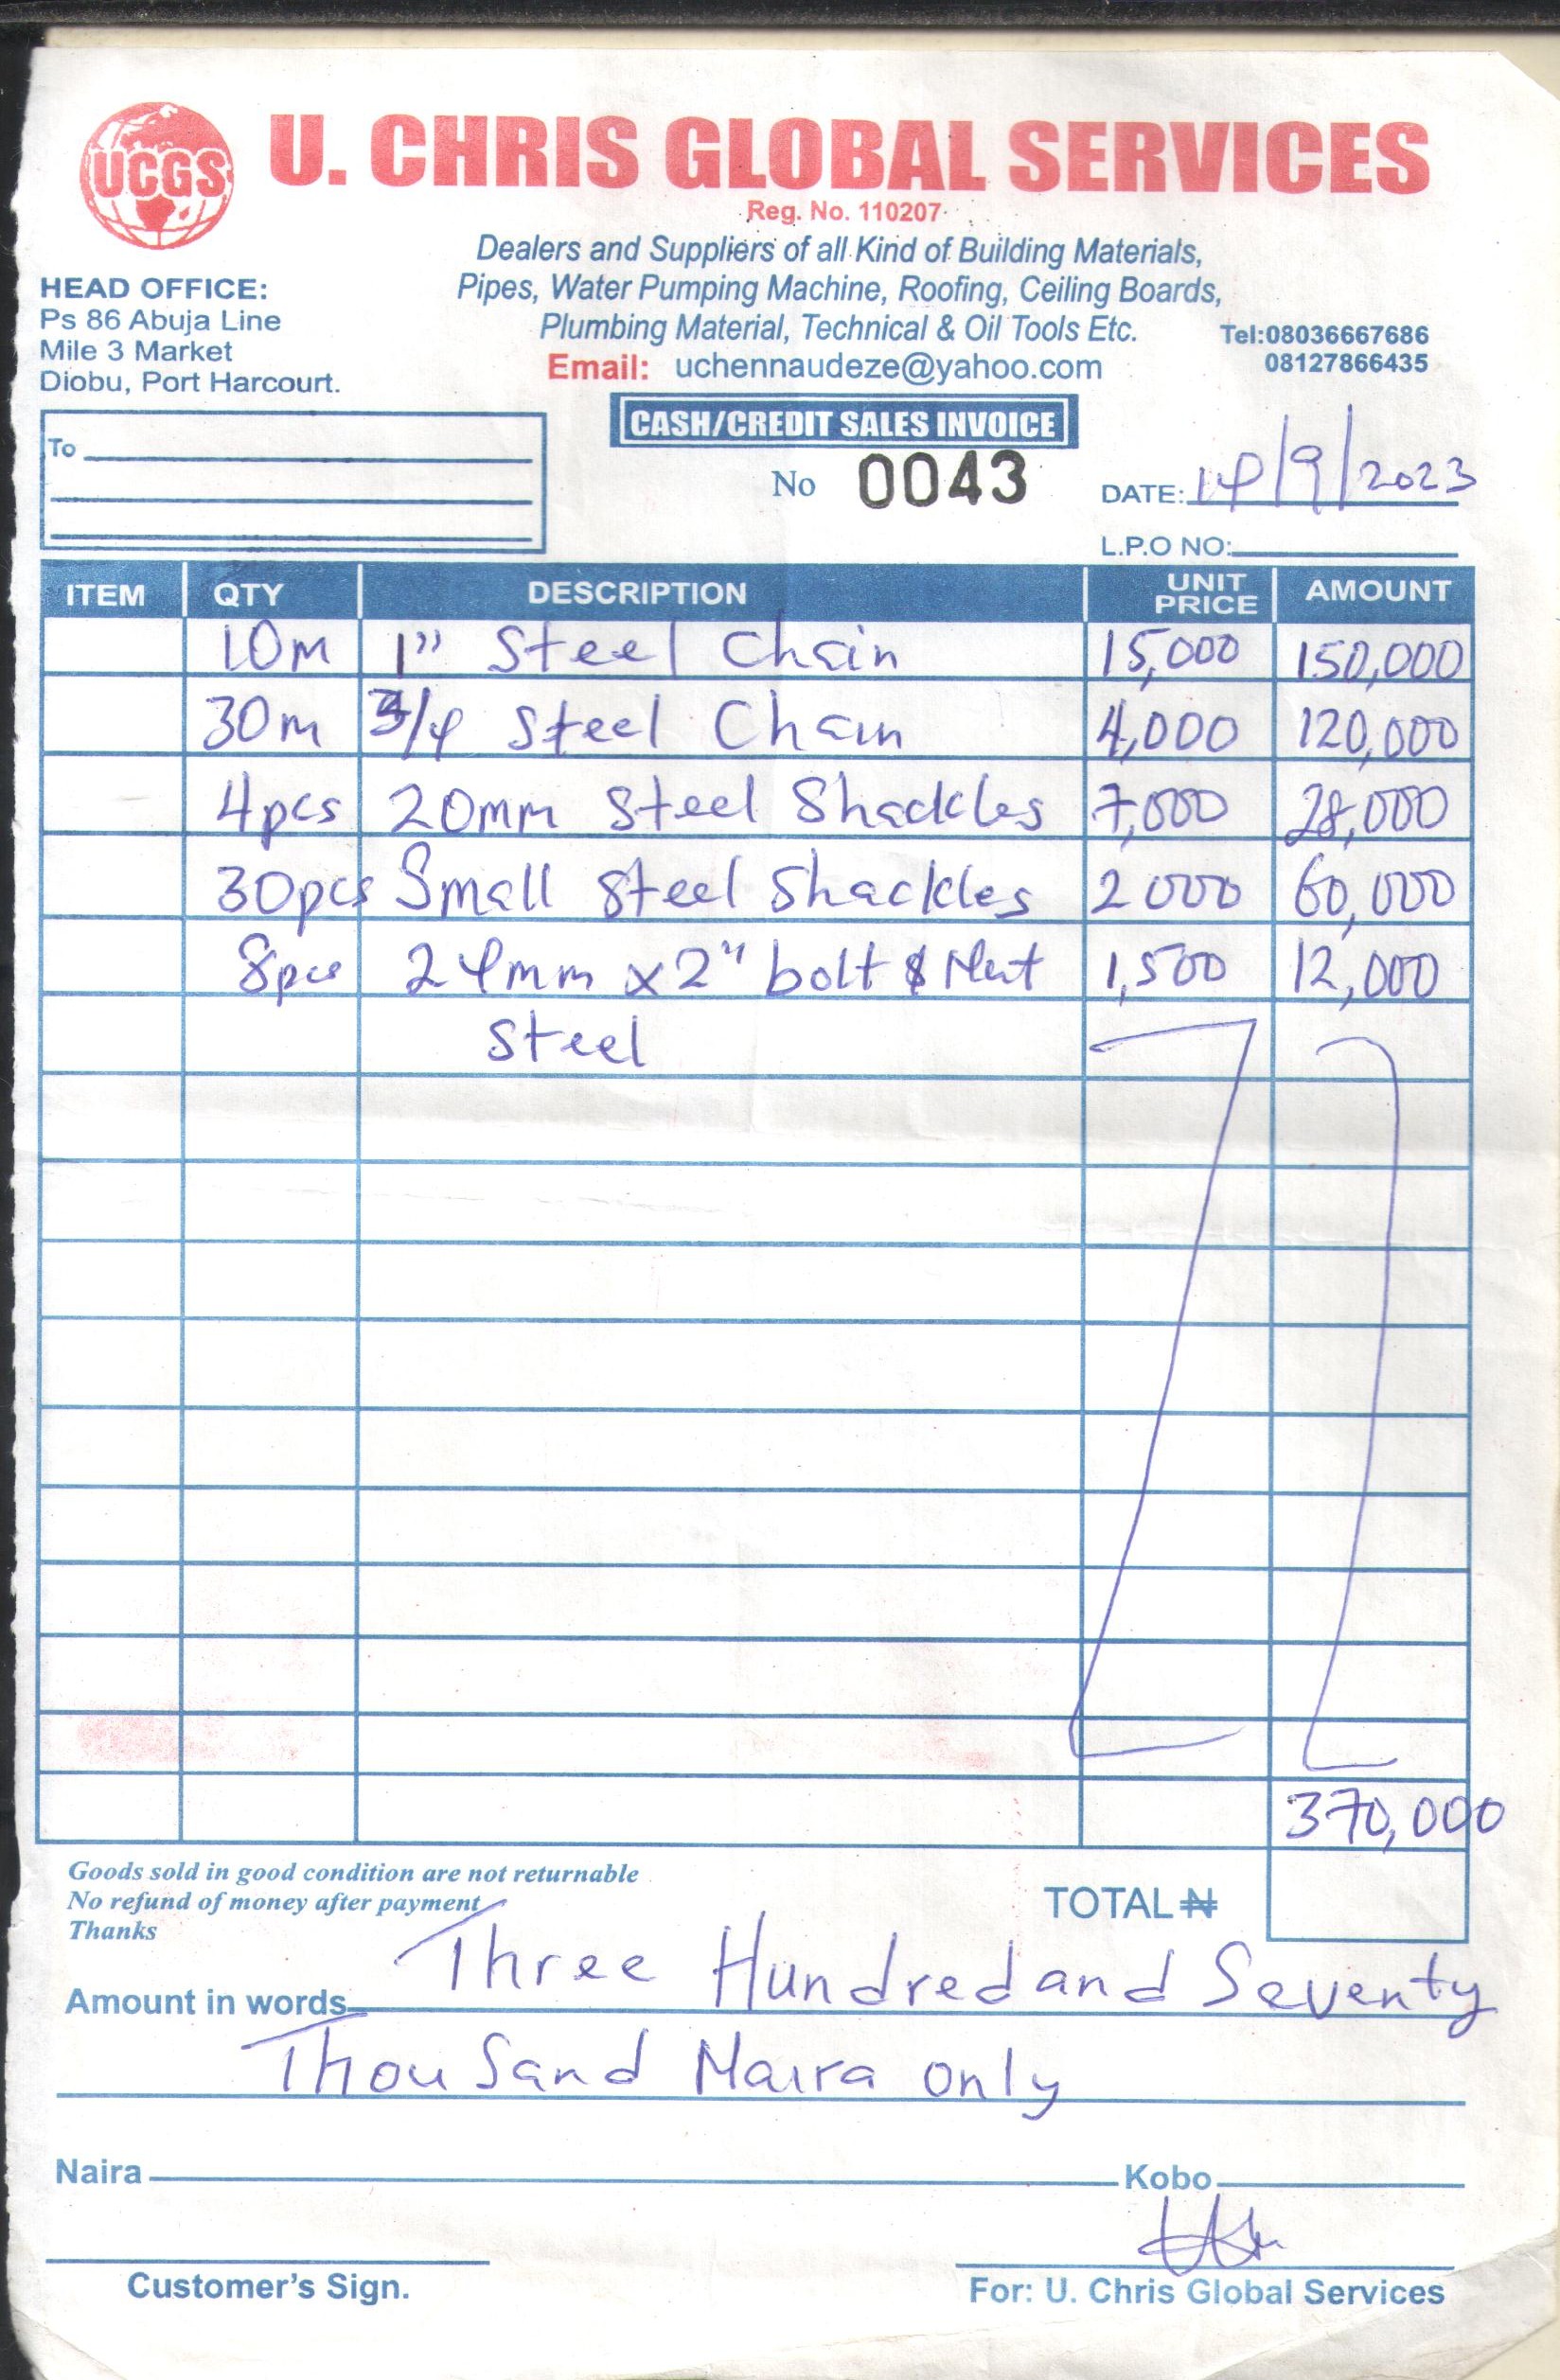 UCGS
U. CHRIS GLOBAL SERVICES
Reg. No. 110207
Dealers and Suppliers of all Kind of Building Materials,
Pipes, Water Pumping Machine, Roofing, Ceiling Boards,
Plumbing Material, Technical & Oil Tools Etc.
Email: uchennaudeze@yahoo.com
HEAD OFFICE:
Ps 86 Abuja Line
Mile 3 Market
Diobu, Port Harcourt.
Tel:08036667686
08127866435
CASH/CREDIT SALES INVOICE
To
No 0043
DATE: 14/9/2023
L.P.O NO:
ITEM QTY DESCRIPTION UNIT PRICE AMOUNT
10m 1" Steel Chain 15,000 150,000
30m 3/4 Steel Chain 4,000 120,000
4pcs 20mm Steel Shackles 7,000 28,000
30pcs Small Steel Shackles 2000 60,000
8pcs 24mm x 2" bolt & Nut 1,500 12,000
Steel
370,000
Goods sold in good condition are not returnable
No refund of money after payment
Thanks
TOTAL ₦
Amount in words Three Hundred and Seventy
Thousand Naira only
Naira Kobo
Customer's Sign.
For: U. Chris Global Services